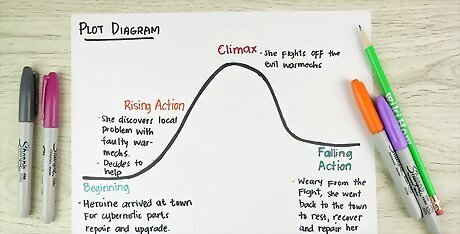 PLOT DIAGRAM
Climax
- She fights off the
evil warmechs
Rising Action
- She discovers local
problem with
faulty war-
mechs.
- Decides to
help
Beginning
- Heroine arrived at town
for cybernetic parts
repair and upgrade.
Falling
Action
- Weary from the
fight, she went
back to the town
to rest, recover
and repair her
Sharpie
Sharpie
Sharpie